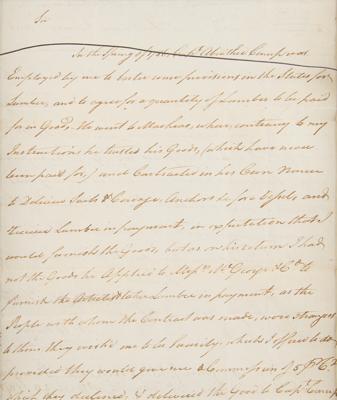 Sir
In the Spring of 1786, Capt. Abiather Camp was
Employed by me to barter some provisions in the States for
Lumber, and to agree for a quantity of Lumber to be paid
for in Goods. He went to Machias, where, contrary to my
Instructions he trusted his Goods, (which have never
been paid for,) and Contracted in his Own Name
to Deliver Sails & Corage, Anchors &c for Vessels, and
Receive Lumber in payment, in expectation that I
would furnish the Goods, but as on his return I had
not the Goods he Applied to Messrs. McGeorge & Co. to
furnish the Articles & take Lumber in payment, as the
People with whom the Contract was made, were strangers
to them they wish'd me to be Security, which I offered to do
provided they would give me a Commission of 5 p Ct.
which they declined, & delivered the Goods to Capt. Camp